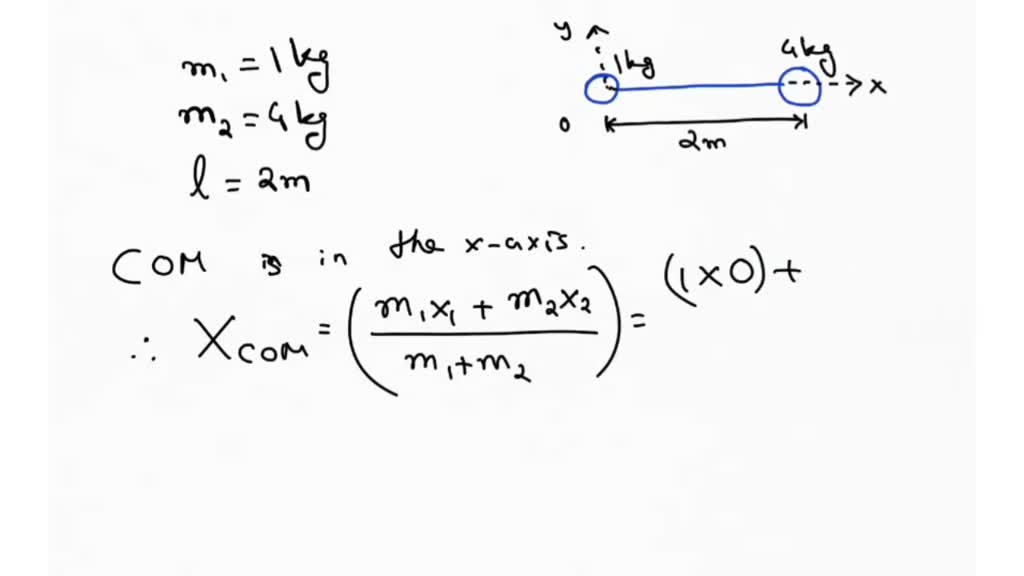 m₁ = 1 kg
m₂ = 4 kg
l = 2m
y
1kg
4kg
x
0
2m
COM is in the x-axis.
∴ X_COM = ( (m₁x₁ + m₂x₂) / (m₁+m₂) ) = (1 × 0) +